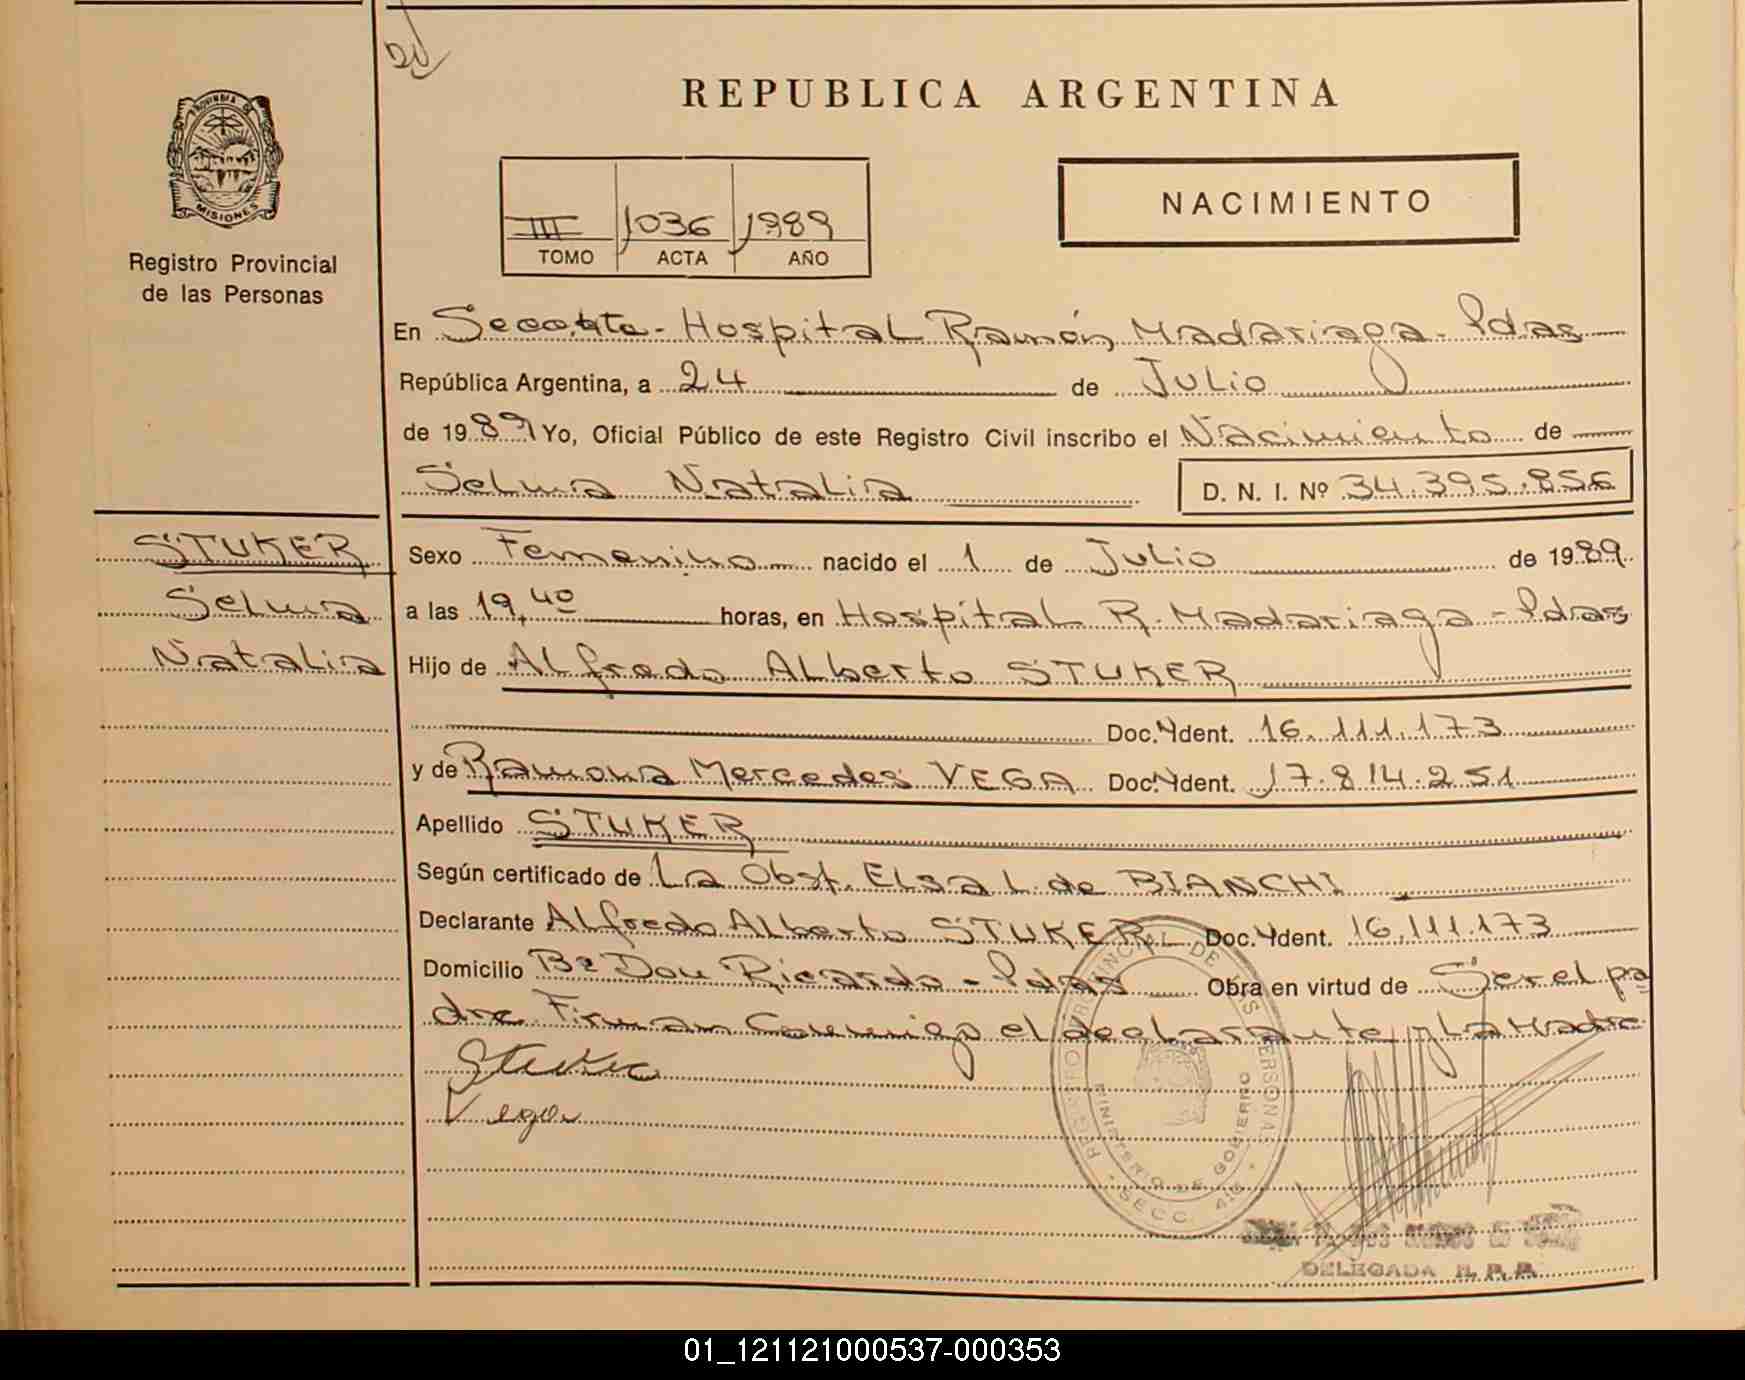 REPUBLICA ARGENTINA
PROVINCIA DE
MISIONES
Registro Provincial
de las Personas
III 1036 1989
TOMO ACTA AÑO
NACIMIENTO
En Hospital Ramón Madariaga - Pdas
República Argentina, a 24 de Julio
de 1989 Yo, Oficial Público de este Registro Civil inscribo el Nacimiento de
Selma Natalia D. N. I. Nº 34.395.856
STUKER
Selma
Natalia
Sexo Femenino nacido el 1 de Julio de 1989
a las 19,40 horas, en Hospital R. Madariaga - Pdas
Hijo de Alfredo Alberto STUKER
Doc. Ident. 16.111.173
y de Ramona Mercedes VEGA Doc. Ident. 17.814.251
Apellido STUKER
Según certificado de La Obst. Elsa L. de BIANCHI
Declarante Alfredo Alberto STUKER Doc. Ident. 16.111.173
Domicilio Bº Don Ricardo - Pdas Obra en virtud de Ser el pa
dre Firman Conmigo el declarante y La Madre
Stuker
Vega
REGISTRO PROVINCIAL DE LAS PERSONAS
MINISTERIO DE GOBIERNO
SECC.
DELEGADA R. P. P.
01_121121000537-000353